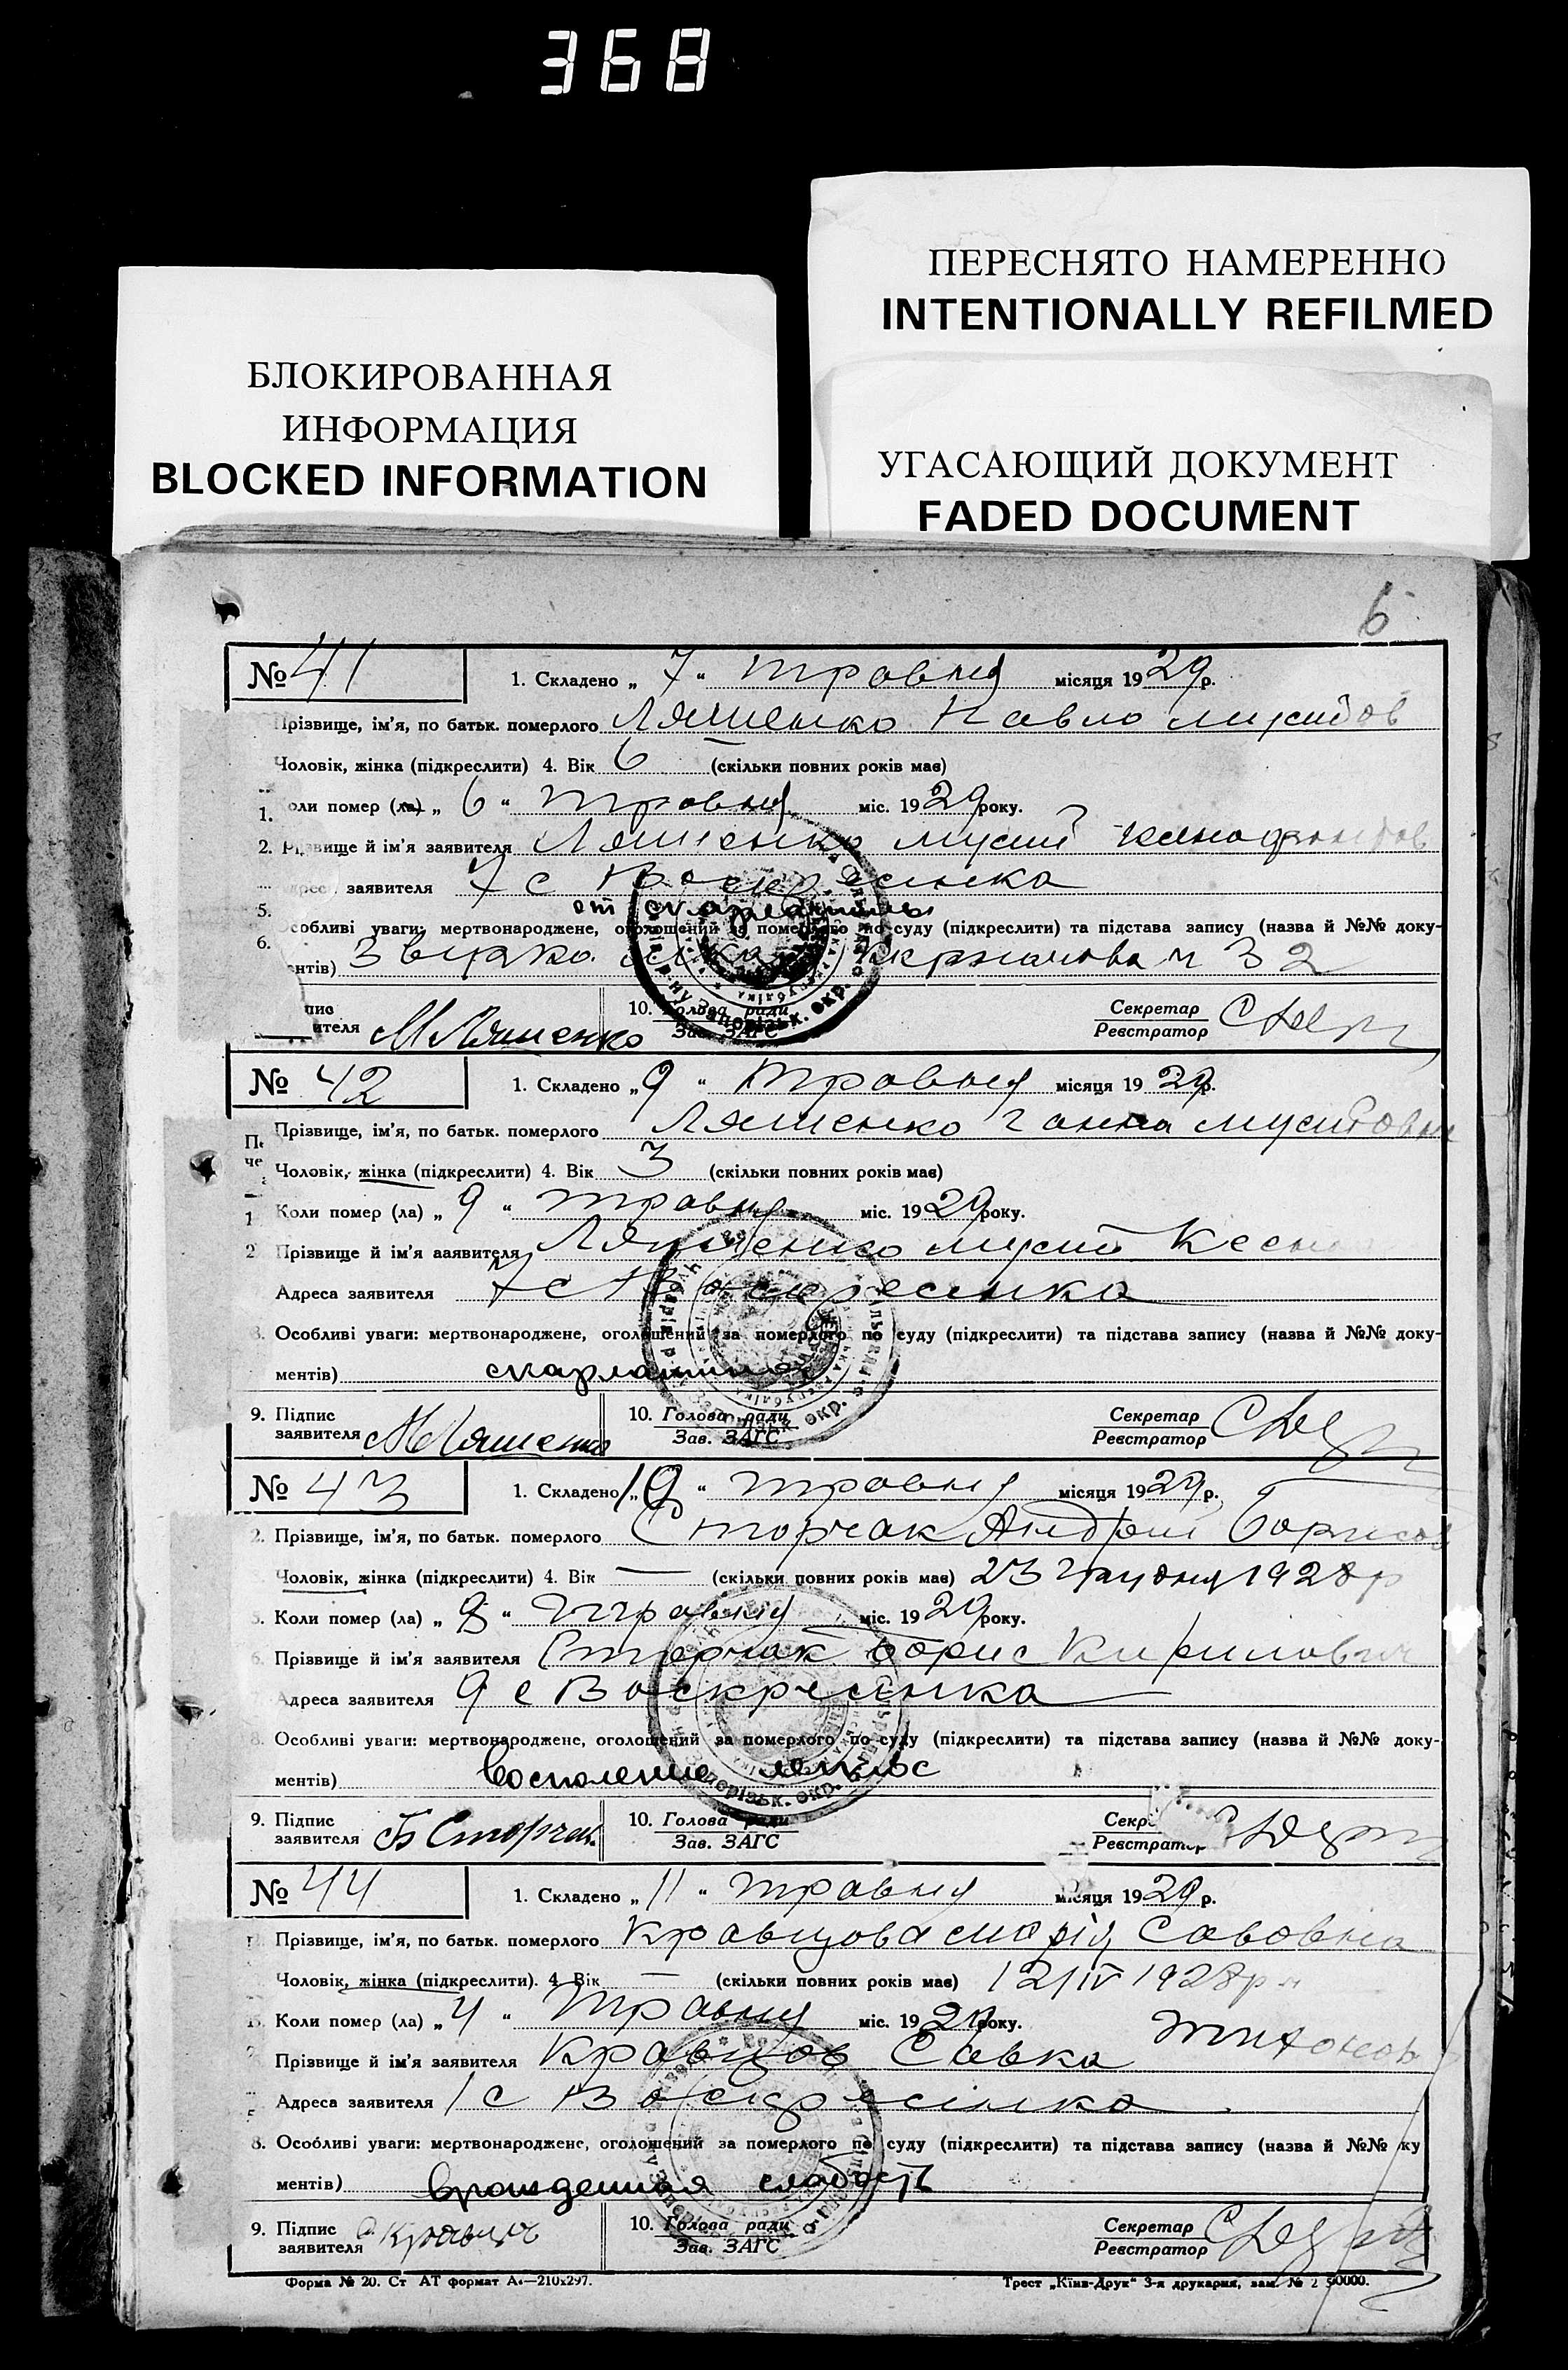 368
ПЕРЕСНЯТО НАМЕРЕННО
INTENTIONALLY REFILMED
БЛОКИРОВАННАЯ
ИНФОРМАЦИЯ
BLOCKED INFORMATION
УГАСАЮЩИЙ ДОКУМЕНТ
FADED DOCUMENT
6
№ 41 1. Складено „ 7 “ травня місяця 1929р.
Прізвище, ім'я, по батьк. померлого Ляшенко Павло Мусійов
Чоловік, жінка (підкреслити) 4. Вік 6 (скільки повних років має)
1. оли помер (ла) „ 6 “ травня міс. 1929року.
2. вище й ім'я заявителя Ляшенко Мусий
заявителя 7 с Воскресінка
от скарлатины
5. собливі уваги: мертвонароджене, оголошений за померлого по суду (підкреслити) та підстава запису (назва й №№ доку-
6. нтів) ч 32
пис
ителя М Ляшенко 10. Голова ради
Зав. ЗАГС Секретар
Реєстратор
№ 42 1. Складено „ 9 “ травня місяця 1929р.
Прізвище, ім'я, по батьк. померлого Ляшенко Ганна Мусійовна
Чоловік, жінка (підкреслити) 4. Вік 3 (скільки повних років має)
1 Коли помер (ла) „ 9 “ травня міс. 1929року.
2 Прізвище й ім'я заявителя Ляшенко Мусий
Адреса заявителя 7 с Воскресінка
8. Особливі уваги: мертвонароджене, оголошений за померлого по суду (підкреслити) та підстава запису (назва й №№ доку-
ментів) скарлатина
9. Підпис
заявителя М Ляшенко 10. Голова ради
Зав. ЗАГС Секретар
Реєстратор
№ 43 1. Складено „ 10 “ травня місяця 1929р.
2. Прізвище, ім'я, по батьк. померлого Сторчак Андрій Борисов
Чоловік, жінка (підкреслити) 4. Вік — (скільки повних років має) 23 грудня 1928 р
5. Коли помер (ла) „ “ травня міс. 1929року.
6. Прізвище й ім'я заявителя Сторчак Борис Кирилович
7. Адреса заявителя 9 с Воскресінка
8. Особливі уваги: мертвонароджене, оголошений за померлого по суду (підкреслити) та підстава запису (назва й №№ доку-
ментів) Воспаление легких
9. Підпис
заявителя Б Сторчак 10. Голова ради
Зав. ЗАГС Секр
Реєстратор
№ 44 1. Складено „ 11 “ травня місяця 1929р.
Прізвище, ім'я, по батьк. померлого Кравцова Марія Савовна
Чоловік, жінка (підкреслити). 4. Вік — (скільки повних років має) 12/IV 1928р
Коли помер (ла) „ “ травня міс. 1929року.
Прізвище й ім'я заявителя Кравцов Савка Тихонов
Адреса заявителя 1 с Воскресінка
8. Особливі уваги: мертвонароджене, оголошений за померлого по суду (підкреслити) та підстава запису (назва й №№ ку
ментів) врожденная слабость
9. Підпис
заявителя 10. Голова ради
Зав. ЗАГС Секретар
Реєстратор
Форма № 20. Ст АТ формат А4—210x297. Трест „Київ-Друк“ 3-я друкарня, зам. № 2 50000.